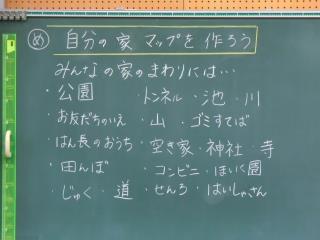 め 自分の家 マップを 作ろう
みんなの家のまわりには…
・公園 ・トンネル・池・川
・お友だちのいえ ・山 ・ゴミすてば
・はん長のおうち ・空き家・神社・寺
・田んぼ ・コンビニ・ほいく園
・じゅく・道 ・せんろ・はいしゃさん